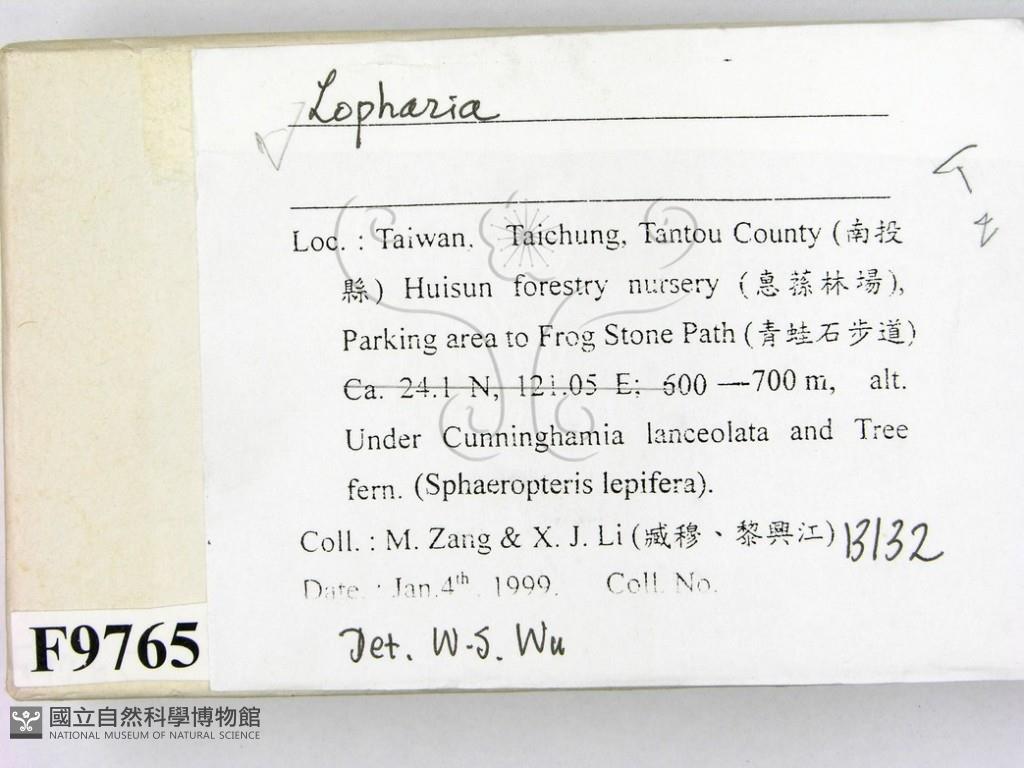 Lopharia
Loc. : Taiwan, Taichung, Tantou County (南投
縣) Huisun forestry nursery (惠蓀林場),
Parking area to Frog Stone Path (青蛙石步道)
Ca. 24.1 N, 121.05 E; 600 — 700 m, alt.
Under Cunninghamia lanceolata and Tree
fern. (Sphaeropteris lepifera).
Coll. : M. Zang & X. J. Li (臧穆、黎興江) 13132
Date. : Jan.4th. 1999. Coll. No.
Det. W-S. Wu
F9765
國立自然科學博物館
NATIONAL MUSEUM OF NATURAL SCIENCE